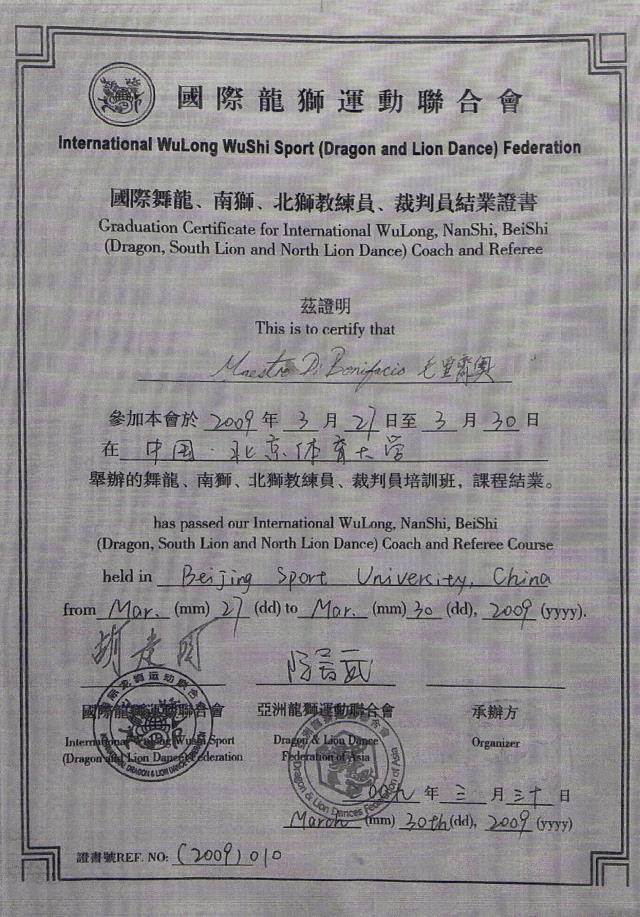 國際龍獅運動聯合會
International WuLong WuShi Sport (Dragon and Lion Dance) Federation
國際舞龍、南獅、北獅教練員、裁判員結業證書
Graduation Certificate for International WuLong, NanShi, BeiShi
(Dragon, South Lion and North Lion Dance) Coach and Referee
茲證明
This is to certify that
Maestro Di Bonifacio 毛里齊奧
參加本會於 2009 年 3 月 27 日至 3 月 30 日
在 中国·北京体育大学
舉辦的舞龍、南獅、北獅教練員、裁判員培訓班，課程結業。
has passed our International WuLong, NanShi, BeiShi
(Dragon, South Lion and North Lion Dance) Coach and Referee Course
held in Beijing Sport University, China
from Mar. (mm) 27 (dd) to Mar. (mm) 30 (dd), 2009 (yyyy).
國際龍獅運動聯合會 亞洲龍獅運動聯合會 承辦方
International WuLong WuShi Sport Dragon & Lion Dance Organizer
(Dragon and Lion Dance) Federation Federation of Asia
二00九 年 三 月 三十 日
March (mm) 30th (dd), 2009 (yyyy)
證書號REF. NO: (2009) 010